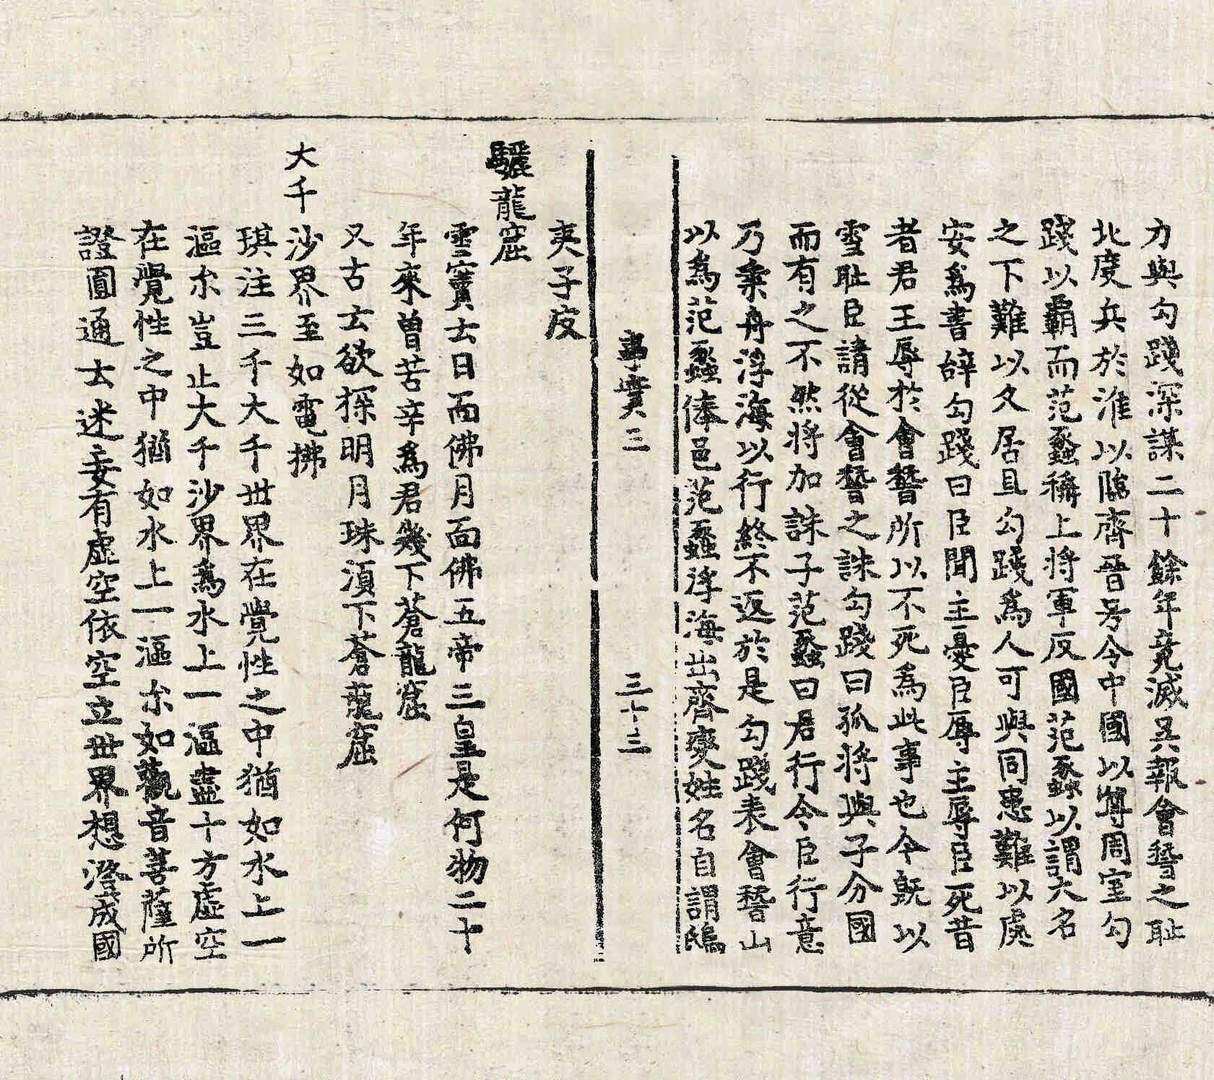 力與勾踐深謀二十餘年竟滅吳報會稽之恥
北度兵於淮以臨齊晉号令中國以尊周室勾
踐以霸而范蠡稱上將軍反國范蠡以謂大名
之下難以久居且勾踐爲人可與同患難以處
安爲書辝勾踐曰臣聞主憂臣辱主辱臣死昔
者君王辱於會稽所以不死爲此事也今旣以
雪恥臣請從會稽之誅勾踐曰孤將與子分國
而有之不然將加誅子范蠡曰君行令臣行意
乃乗舟浮海以行終不返於是勾踐表會稽山
以爲范蠡俸邑范蠡浮海出齊變姓名自謂鴟
事實三 三十三
夷子皮
驪龍窟
雪竇云日面佛月面佛五帝三皇是何物二十
年來曽苦辛爲君幾下蒼龍窟
又古云欲探明月珠須下蒼龍窟
大千沙界至如電拂
琪注三千大千世界在覺性之中猶如水上一
漚尒豈止大千沙界爲水上一漚盡十方虛空
在覺性之中猶如水上一漚尒如觀音菩薩所
證圓通云迷妄有虛空依空立世界想澄成國